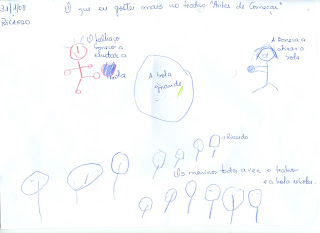 31/1/08
O que eu gostei mais no teatro "Antes de Começar"
RICARDO
O palhaço
bola
A boneca a
atirar a
bola
A bola
grande
Ricardo
Os meninos todos a ver o teatro
e a bola